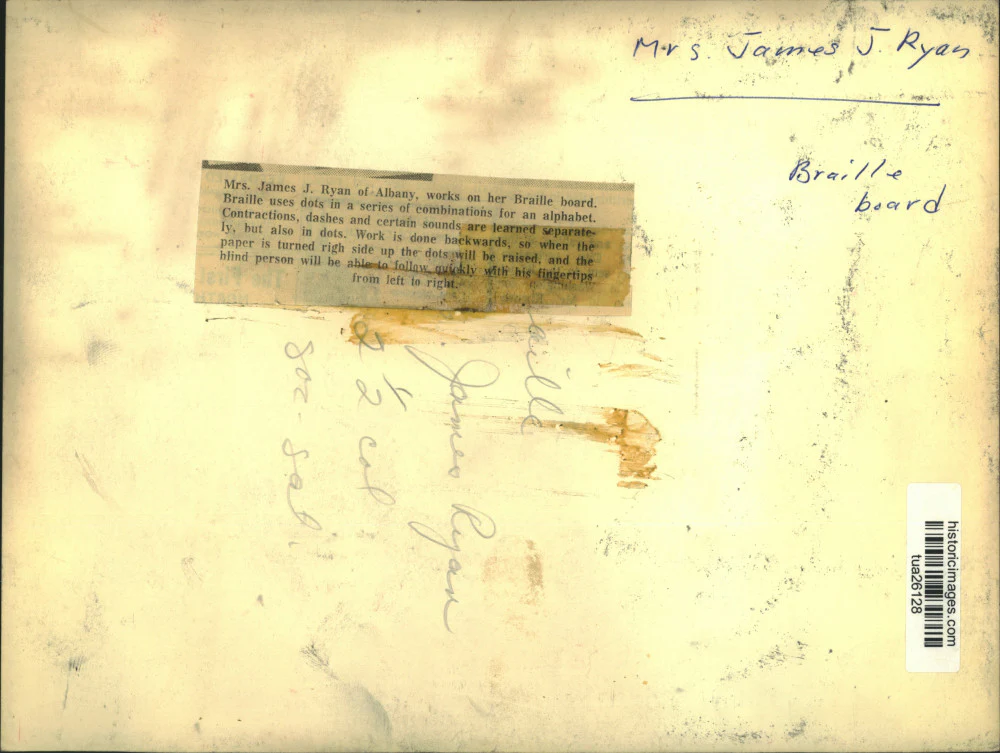 Mrs. James J. Ryan
Braille
board
Mrs. James J. Ryan of Albany, works on her Braille board.
Braille uses dots in a series of combinations for an alphabet.
Contractions, dashes and certain sounds are learned separate-
ly, but also in dots. Work is done backwards, so when the
paper is turned righ side up the dots will be raised, and the
blind person will be able to follow quickly with his fingertips
from left to right.
aille
James Ryan
2 col
soc. sat.
historicimages.com
tua26128